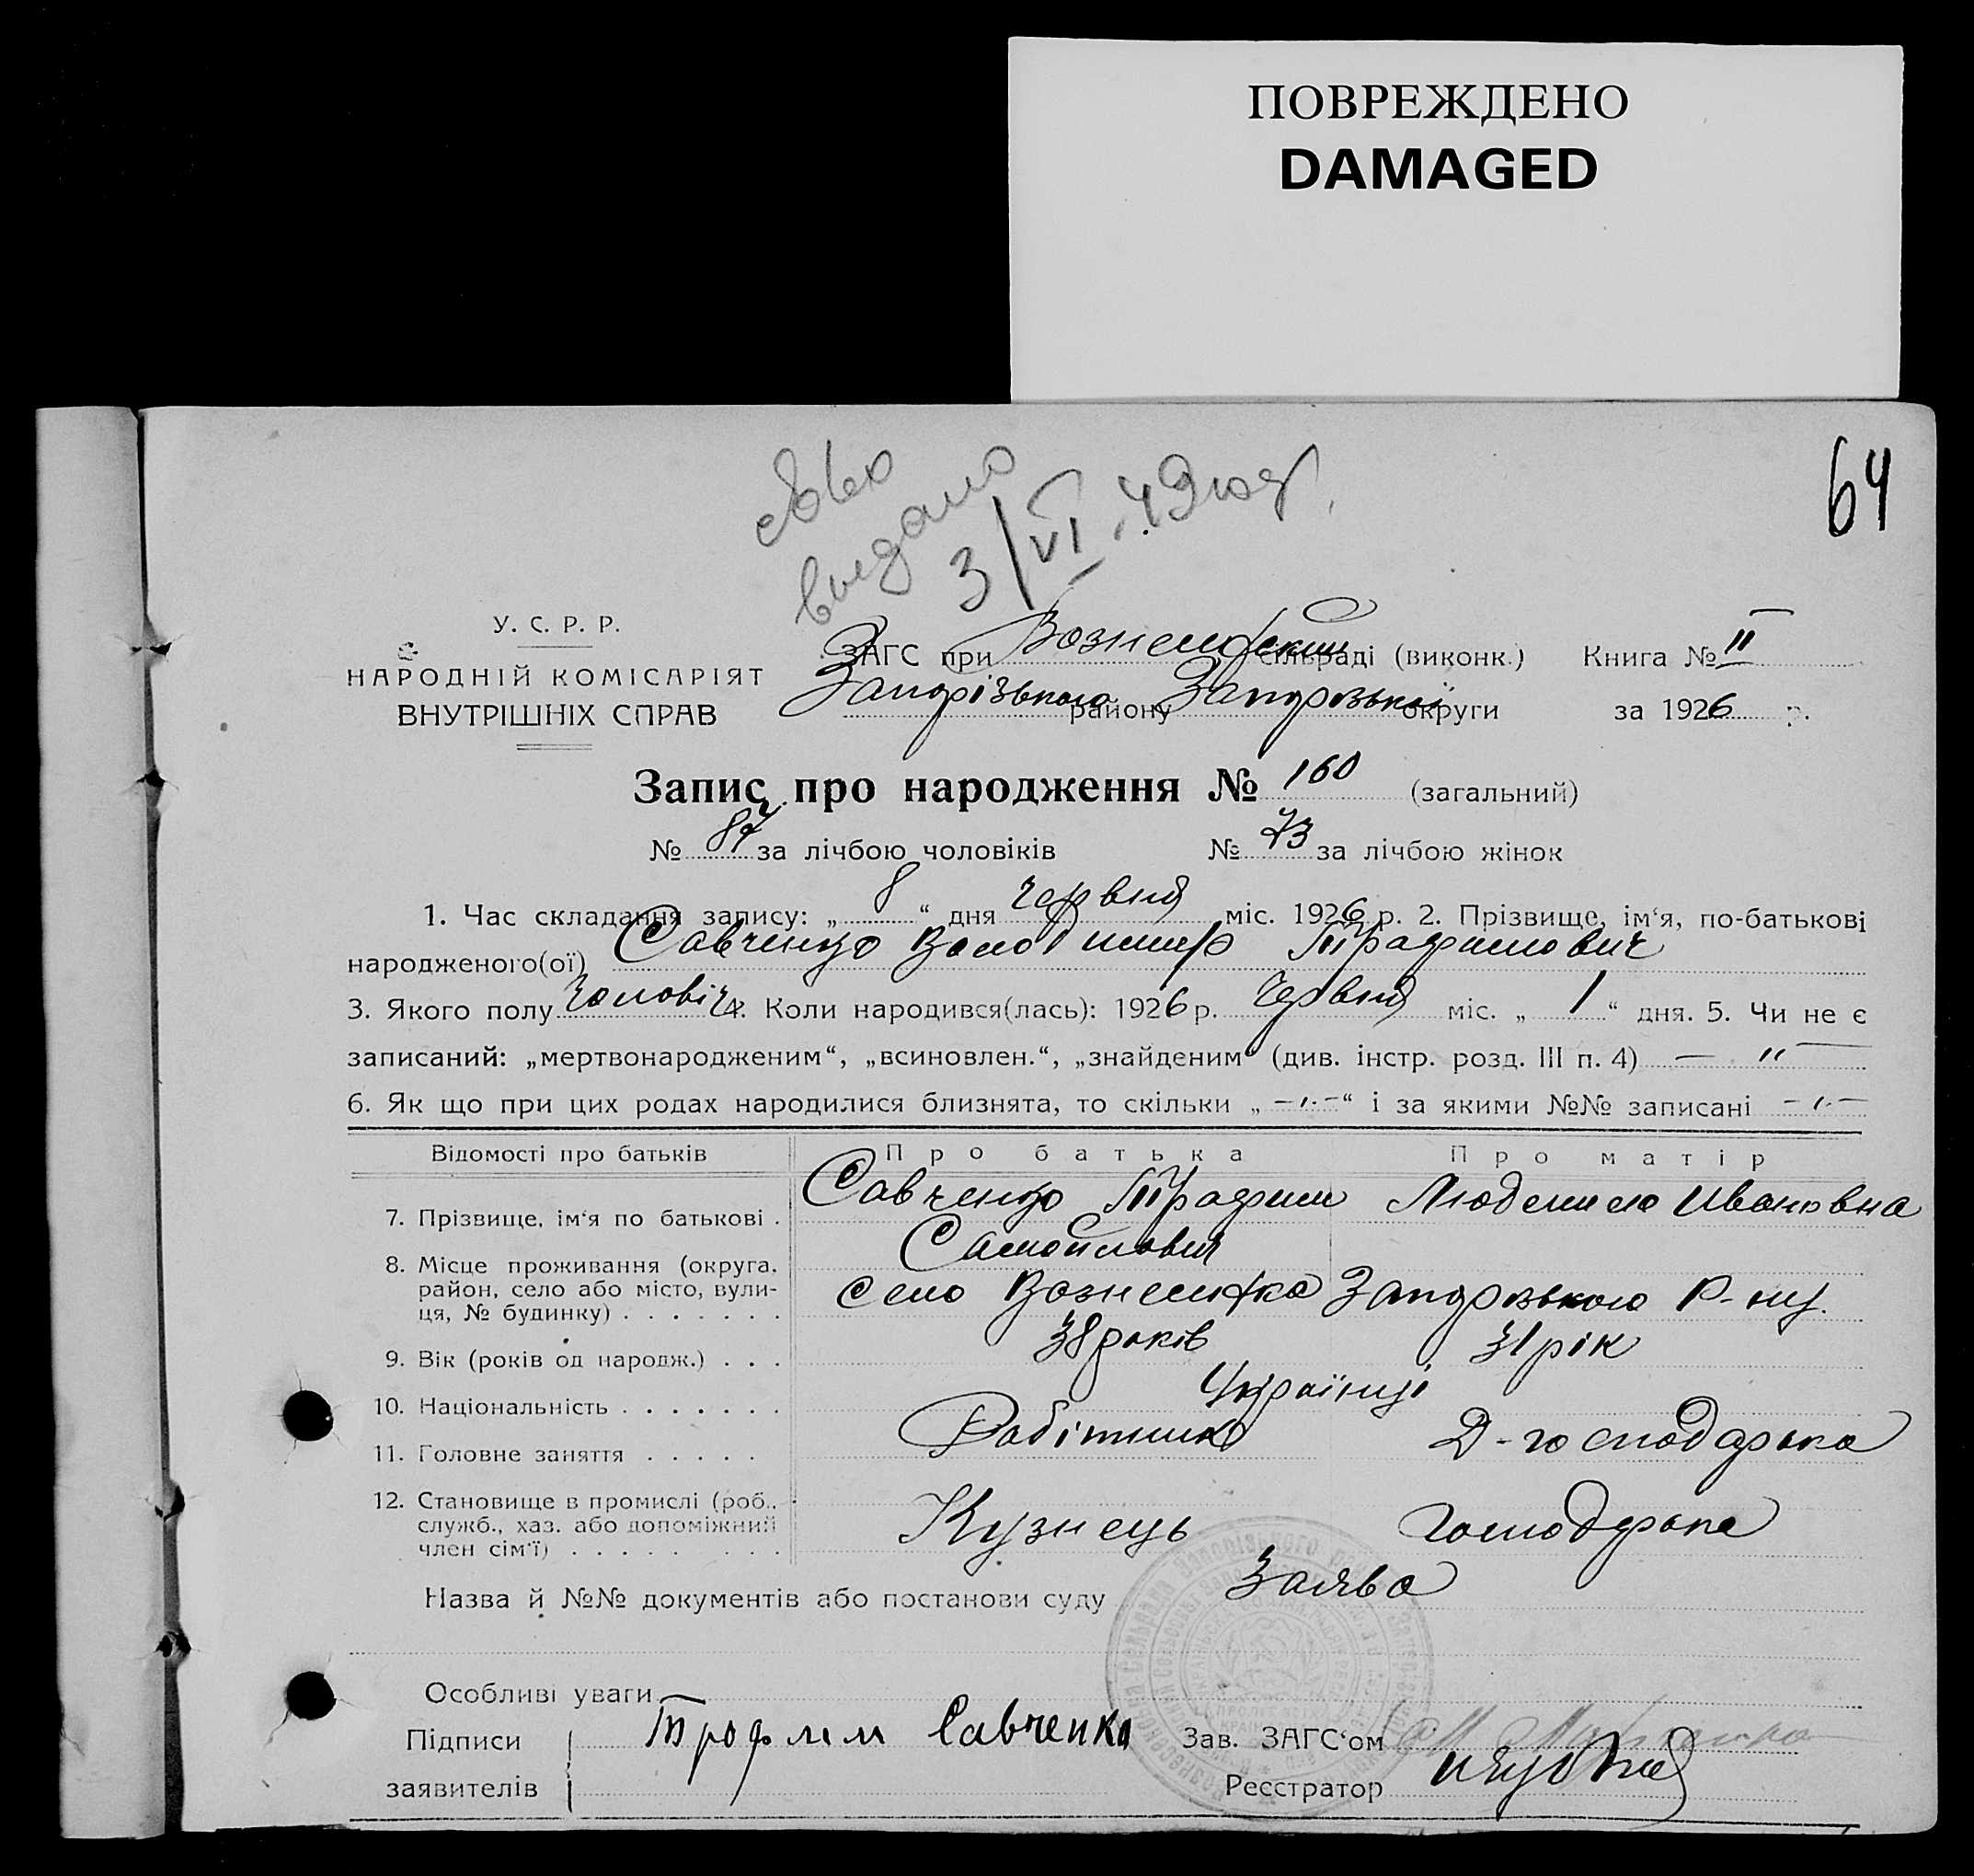 ПОВРЕЖДЕНО
DAMAGED
64
св-во
выдано
3/VI-49 год.
У. С. Р. Р.
НАРОДНІЙ КОМІСАРІЯТ
ВНУТРІШНІХ СПРАВ
ЗАГС при Вознесенській сільраді (виконк.) Книга № II
Запорізького району Запорізької округи за 1926 р.
Запис про народження № 160 (загальний)
№ 87 за лічбою чоловіків № 73 за лічбою жінок
1. Час складання запису: „ 8 “ дня червня міс. 1926 р. 2. Прізвище, ім‘я, по-батькові
народженого(ої) Савченко Володимир Трафимович
3. Якого полу Чоловіч. 4. Коли народився(лась): 1926 р. Червня міс. „ 1 “ дня. 5. Чи не є
записаний: „мертвонародженим“, „всиновлен.“, „знайденим“ (див. інстр. розд. III п. 4) — „ —
6. Як що при цих родах народилися близнята, то скільки „ -„- “ і за якими №№ записані -„-
Відомості про батьків Про батька Про матір
7. Прізвище, ім‘я по батькові . Савченко Трафим Людмила Ивановна
Самойлович
8. Місце проживання (округа, район, село або місто, вули-ця, № будинку) . . . . . . . село Вознесенка Запорізького Р-ну.
9. Вік (років од народж.) . . . 38 років 31 рік
10. Національність . . . . . . . Українці
11. Головне заняття . . . . . Робітник Д-господарька
12. Становище в промислі (роб., служб., хаз. або допоміжний член сім‘ї) . . . . . . . . Кузнець господарька
Назва й №№ документів або постанови суду Заява
Особливі уваги
Підписи Трофим Савченко Зав. ЗАГС‘ом
заявителів Реєстратор